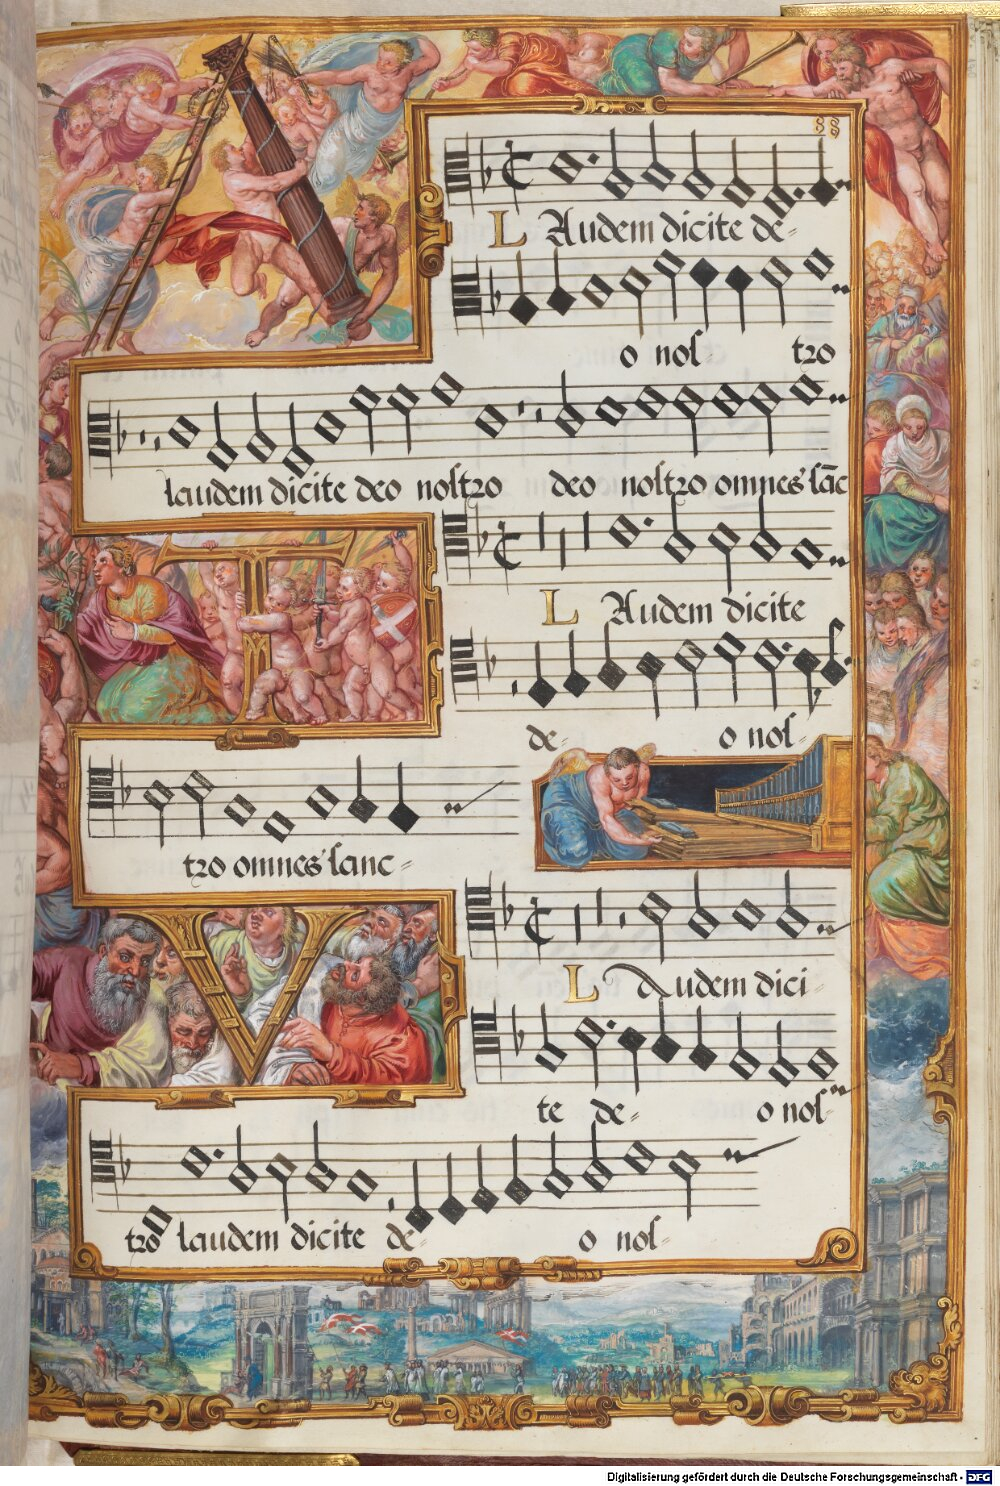 88
L Audem dicite de-
o nos tro
laudem dicite deo nostro deo nostro omnes sāc
A
L Audem dicite
de- o nos-
T
tro omnes sanc-
L Audem dici-
V
te de- o nos-
tro laudem dicite de- o nos-
Digitalisierung gefördert durch die Deutsche Forschungsgemeinschaft - DFG